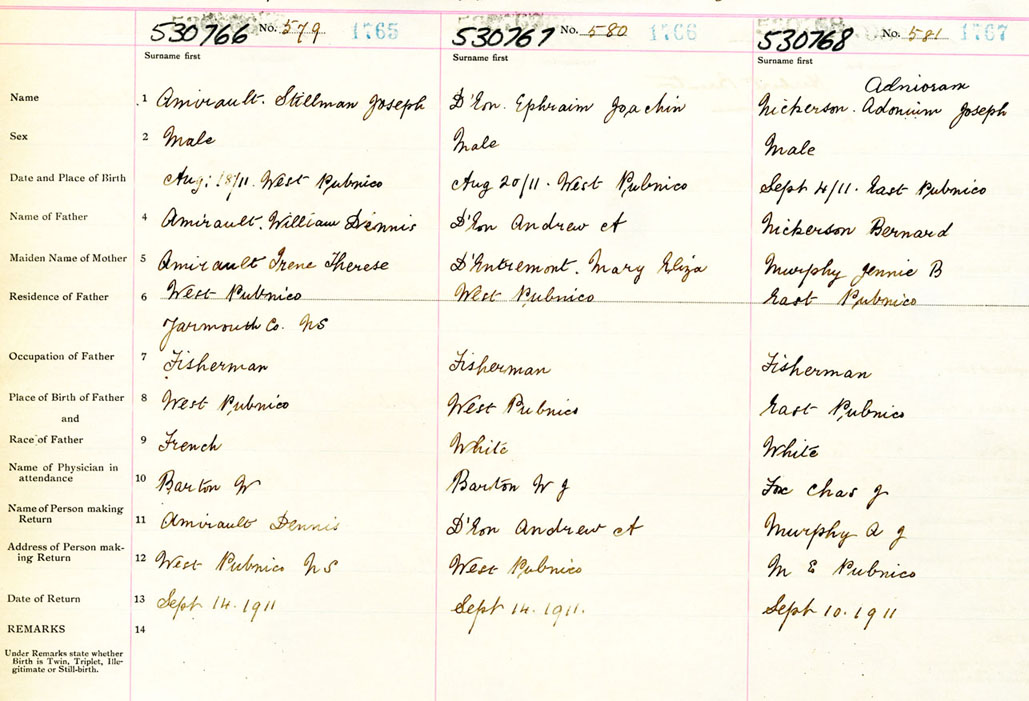 530766 No. 579 1765 530767 No. 580 1766 530768 No. 581 1767
Surname first Surname first Surname first
Adnioram
Name 1 Amirault. Stillman Joseph D'Eon. Ephraim Joachin Nickerson. Adonium Joseph
Sex 2 Male Male Male
Date and Place of Birth Aug: 18/11. West Pubnico Aug 20/11. West Pubnico Sept 4/11. East Pubnico
Name of Father 4 Amirault. William Dennis D'Eon Andrew A Nickerson Bernard
Maiden Name of Mother 5 Amirault Irene Therese D'Entremont. Mary Eliza Murphy Jennie B
Residence of Father 6 West Pubnico West Pubnico East Pubnico
Yarmouth Co. NS
Occupation of Father 7 Fisherman Fisherman Fisherman
Place of Birth of Father 8 West Pubnico West Pubnico East Pubnico
and
Race of Father 9 French White White
Name of Physician in
attendance 10 Barton W Barton W J Fox Chas J
Name of Person making
Return 11 Amirault Dennis D'Eon Andrew A Murphy A J
Address of Person mak-
ing Return 12 West Pubnico NS West Pubnico M E Pubnico
Date of Return 13 Sept 14. 1911 Sept 14. 1911. Sept 10. 1911
REMARKS 14
Under Remarks state whether
Birth is Twin, Triplet, Ille-
gitimate or Still-birth.